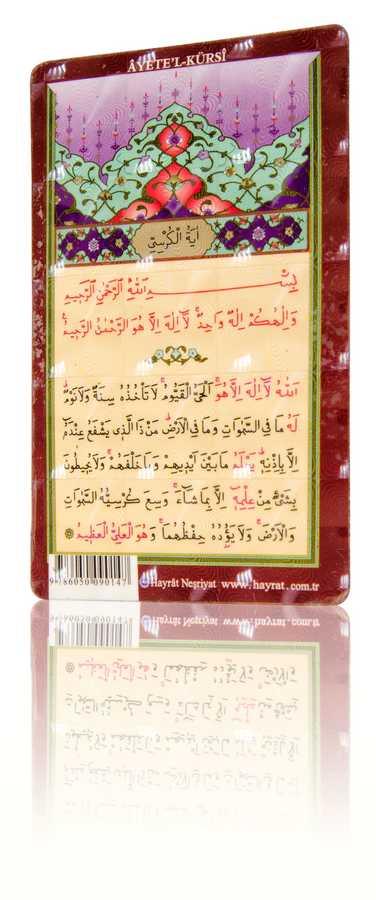 ÂYETE'L-KÜRSÎ
اٰيَةُ الْكُرْسِيِّ
بِسْمِ اللّٰهِ الرَّحْمٰنِ الرَّحِيمِ
وَاِلٰهُكُمْ اِلٰهٌ وَاحِدٌۚ لَٓا اِلٰهَ اِلَّا هُوَ الرَّحْمٰنُ الرَّحِيمُ
اَللّٰهُ لَٓا اِلٰهَ اِلَّا هُوَۚ اَلْحَيُّ الْقَيُّومُۚ لَا تَأْخُذُهُ سِنَةٌ وَلَا نَوْمٌۜ
لَهُ مَا فِي السَّمٰوَاتِ وَمَا فِي الْاَرْضِۜ مَنْ ذَا الَّذِي يَشْفَعُ عِنْدَهُٓ
اِلَّا بِاِذْنِهِۜ يَعْلَمُ مَا بَيْنَ اَيْدِيهِمْ وَمَا خَلْفَهُمْۚ وَلَا يُحِيطُونَ
بِشَيْءٍ مِنْ عِلْمِهِٓ اِلَّا بِمَا شَٓاءَۚ وَسِعَ كُرْسِيُّهُ السَّمٰوَاتِ
وَالْاَرْضَۚ وَلَا يَؤُ۫دُهُ حِفْظُهُمَاۚ وَهُوَ الْعَلِيُّ الْعَظِيمُ
9 786050 090147
Hayrât Neşriyat www.hayrat.com.tr